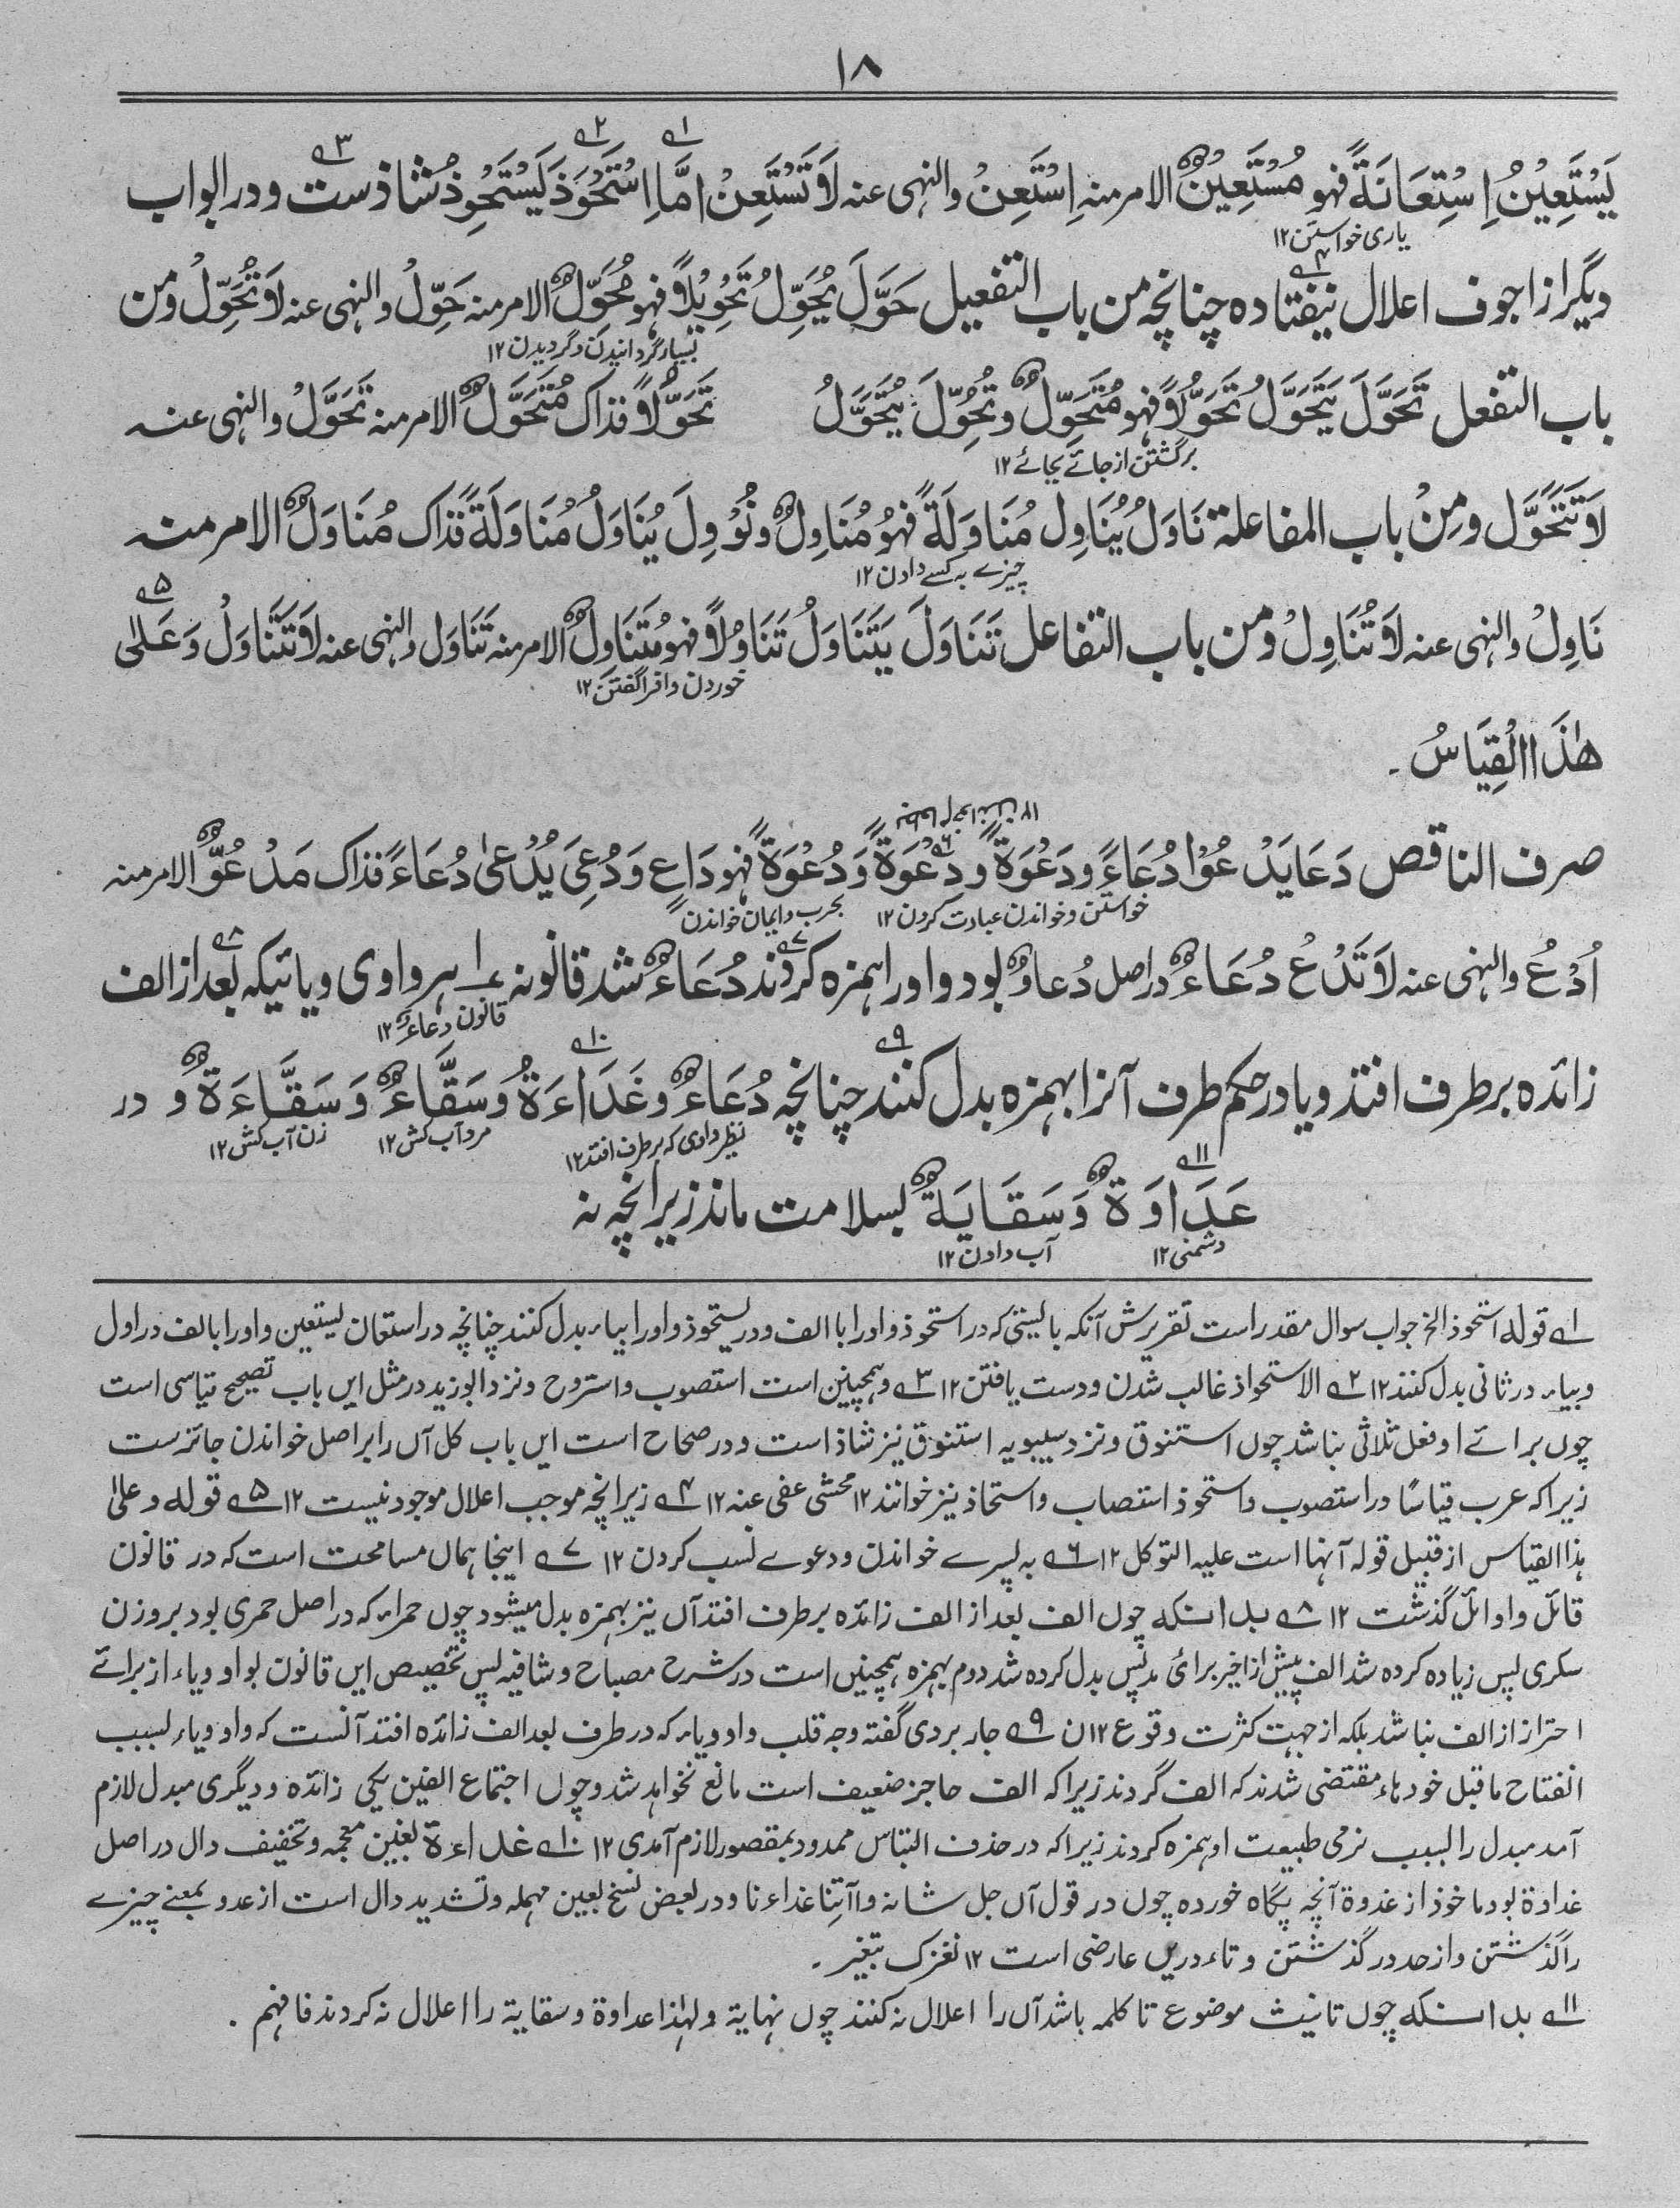 ۱۸
یَسْتَعِیْنُ اِسْتِعَانَةً فهو مُسْتَعِیْنٌ الامر منه اِسْتَعِنْ والنهی عنه لَا تَسْتَعِنْ اَمَّا اِسْتَحْوَذَ یَسْتَحْوِذُ شاذ ست و در ابواب
یاری خواستن ۱۲
دیگر از اجوف اعلال نیفتاده چنانچه من باب التفعیل حَوَّلَ یُحَوِّلُ تَحْوِیْلًا فهو مُحَوِّلٌ الامر منه حَوِّلْ والنهی عنه لَا تُحَوِّلْ ومن
بسیار گردانیدن و گردیدن ۱۲
باب التفعل تَحَوَّلَ یَتَحَوَّلُ تَحَوُّلًا فهو مُتَحَوِّلٌ وتُحُوِّلَ یُتَحَوَّلُ تَحَوُّلًا فذاک مُتَحَوَّلٌ الامر منه تَحَوَّلْ والنهی عنه
برگشتن از جائے بجائے ۱۲
لَا تَتَحَوَّلْ ومِنْ باب المفاعلة نَاوَلَ یُنَاوِلُ مُنَاوَلَةً فهُو مُنَاوِلٌ ونُوْوِلَ یُنَاوَلُ مُنَاوَلَةً فذاک مُنَاوَلٌ الامر منه
چیزے به کسے دادن ۱۲
نَاوِلْ والنهی عنه لَا تُنَاوِلْ ومن باب التفاعل تَنَاوَلَ یَتَنَاوَلُ تَنَاوُلًا فهو مُتَنَاوِلٌ الامر منه تَنَاوَلْ والنهی عنه لَا تَتَنَاوَلْ وَعَلٰی
خوردن و فراگفتن ۱۲
هٰذَا الْقِیَاسُ۔
صرف الناقص دَعَا یَدْعُوْا دُعَاءً ودَعْوَةً ودِعْوَةً وَدُعْوَةً فهو دَاعٍ وَدُعِیَ یُدْعٰی دُعَاءً فذاک مَدْعُوٌّ الامر منه
خواستن و خواندن عبادت کردن ۱۲ بحرب و ایمان خواندن
اُدْعُ والنهی عنه لَا تَدْعُ دُعَاءٌ در اصل دُعاوٌ بود واو را همزه کردند دُعَاءٌ شد قانونه ۱ هر واوی و یائیکه بعد از الف
قانون دعاءٌ ۱۲
زائده برطرف افتد و یا در حکم طرف آنرا بهمزه بدل کنند چنانچه دُعَاءٌ وغَدَاءَةٌ وَسَقَّاءٌ وَسَقَّاءَةٌ و در
نظیر واوی که برطرف افتد ۱۲ مرد آب کش ۱۲ زن آب کش ۱۲
عَدَاوَةٌ وَسَقَایَةٌ بسلامت ماند زیرا نچه نه
دشمنی ۱۲ آب دادن ۱۲
۱؎ قوله استحوذ الخ جواب سوال مقدر است تقریرش آنکه بالیتی که در استحوذ واو را با الف و در یستحوذ واو را بیاء بدل کنند چنانچه در استعان یستعین واو را بالف در اول
و بیاء در ثانی بدل کنند ۱۲ ۲؎ الاستحواذ غالب شدن و دست یافتن ۱۲ ۳؎ و همچنین است استصوب و استروح و نزد ابو زید در مثل این باب تصحیح قیاسی است
چوں برائے او فعل ثلاثی نباشد چوں استنوق و نزد سیبویه استنوق نیز شاذ است و در صحاح است ایں باب کل آں را بر اصل خواندن جائز ست
زیرا که عرب قیاسًا در استصوب و استحوذ استصاب و استحاذ نیز خوانند ۱۲ محشی عفی عنه ۱۲ ۴؎ زیرا نچه موجب اعلال موجود نیست ۱۲ ۵؎ قوله وعلیٰ
هذا القیاس از قبیل قوله آنها است علیه التوکل ۱۲ ۶؎ به پسرے خواندن و دعوے نسب کردن ۱۲ ۷؎ اینجا همان مسامحت است که در قانون
قائل و اوائل گذشت ۱۲ ۸؎ بدانکه چوں الف بعد از الف زائده برطرف افتد آں نیز بهمزه بدل میشود چوں حمراء که در اصل حمری بود بروزن
سکری پس زیاده کرده شد الف پیش از اخیر برائ مد پس بدل کرده شد دوم بهمزه همچنین است در شرح مصباح و شافیه پس تخصیص این قانون بواو و یاء از برائے
احتراز از الف نباشد بلکه از جهت کثرت وقوع ۱۲ن ۹؎ جار بردی گفته وجه قلب واو و یاء که در طرف بعد الف زائده افتد آنست که واو و یاء بسبب
انفتاح ماقبل خودهاء مقتضی شدند که الف گردند زیرا که الف حاجز ضعیف است مانع نخواهد شد و چوں اجتماع الفین یکی زائده و دیگری مبدل لازم
آمد مبدل را بسبب نرمی طبیعت او همزه کردند زیرا که در حذف التباس ممدود بمقصور لازم آمدی ۱۲ ۱۰؎ غداءة بغین معجمه و تخفیف دال در اصل
غداوة بود ماخوذ از غدوة آنچه پگاه خورده چوں در قول آں جل شانه وآتنا غداءنا و در بعض نسخ بعین مهمله و تشدید دال است از عدو بمعنے چیزے
را گذشتن و از حد در گذشتن و تاء دریں عارضی است ۱۲ نغزک بتغیر۔
۱۱؎ بدانکه چوں تانیث موضوع تا کلمه باشد آں را اعلال نه کنند چوں نهایة ولهٰذا عداوة وسقایة را اعلال نه کردند فافهم۔